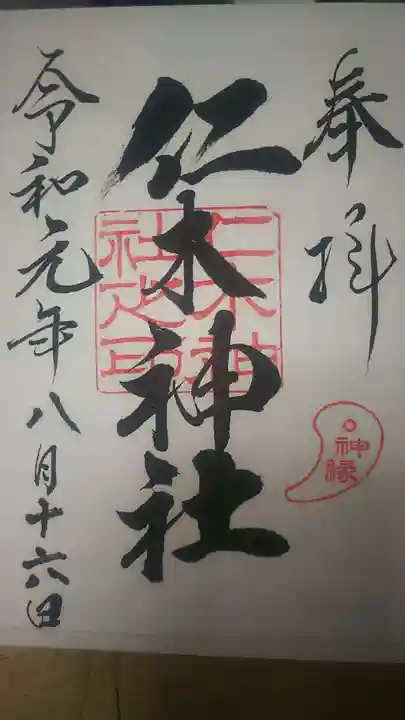 奉拝
神縁
仁木神社
仁木神社之印
令和元年八月十六日